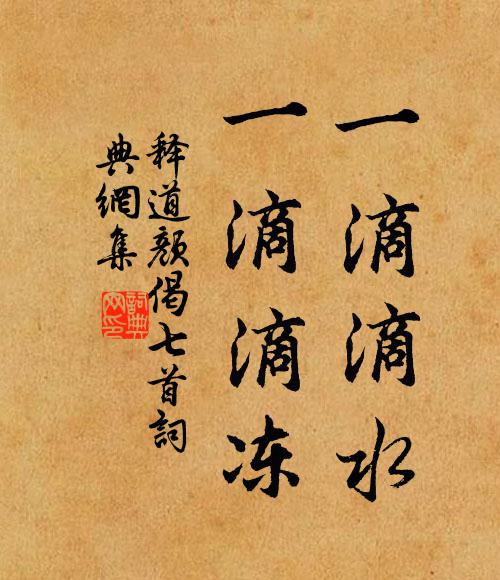 一滴滴水
一滴滴冻
释道颜偈七首词
典網集
詞典网印